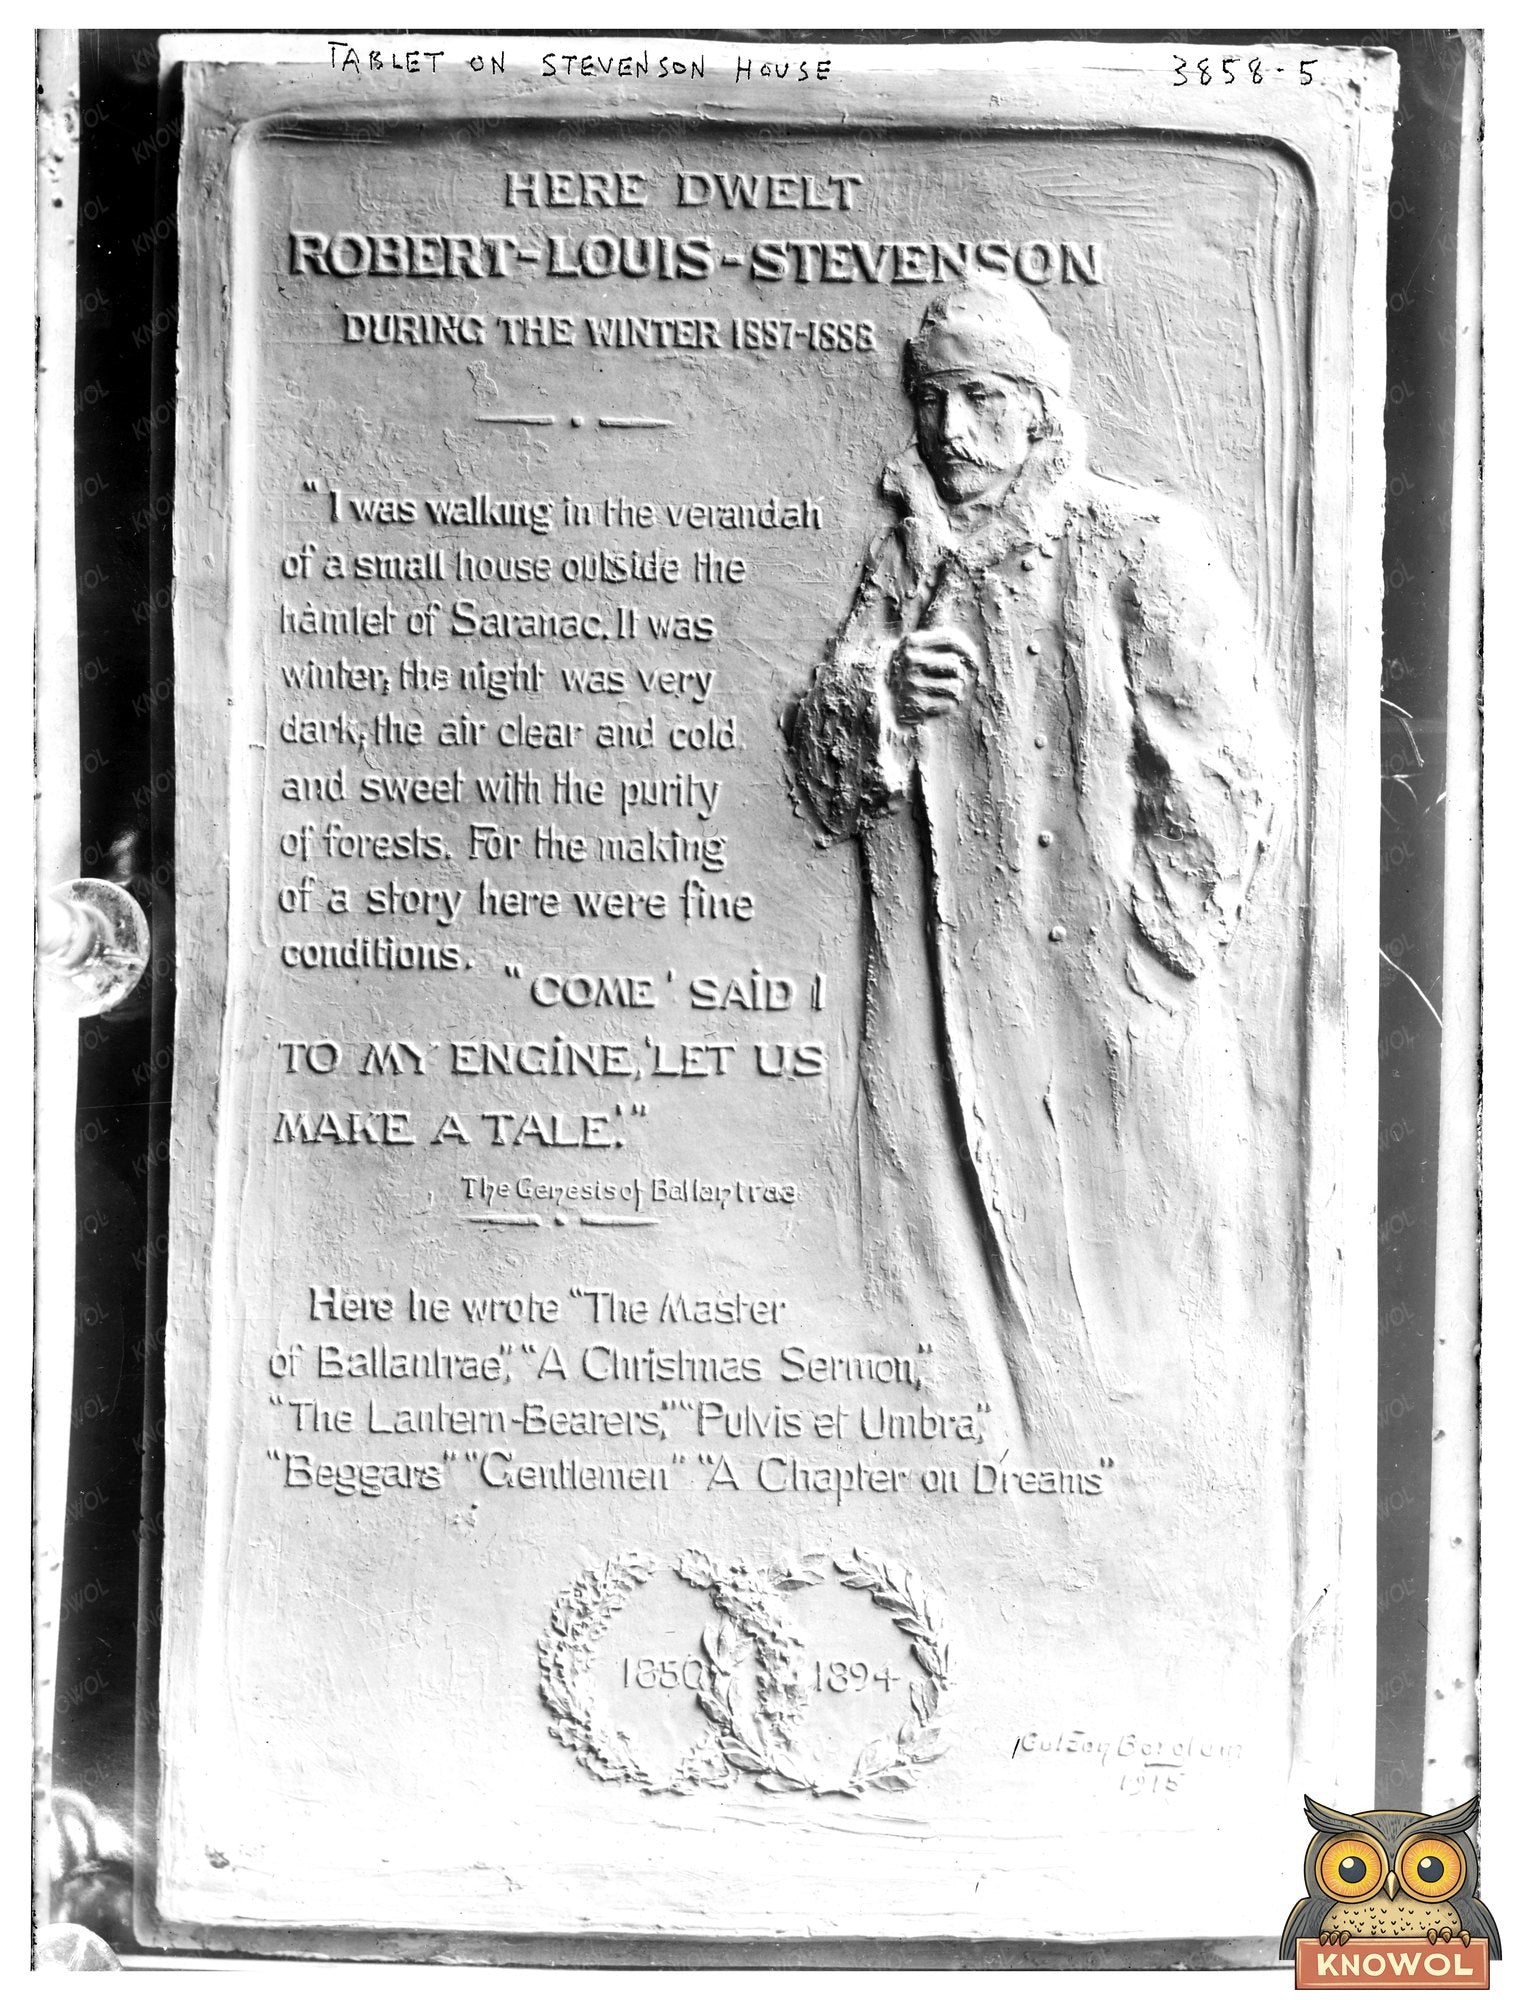 TABLET ON STEVENSON HOUSE
3858-5
HERE DWELT
ROBERT-LOUIS-STEVENSON
DURING THE WINTER 1887-1888
"I was walking in the verandah
of a small house outside the
hamlet of Saranac. It was
winter; the night was very
dark; the air clear and cold.
and sweet with the purity
of forests. For the making
of a story here were fine
conditions.
"COME' SAID I
TO MY ENGINE, 'LET US
MAKE A TALE.'"
The Genesis of Ballantrae
Here he wrote "The Master
of Ballantrae", "A Christmas Sermon,"
"The Lantern-Bearers," "Pulvis et Umbra,"
"Beggars" "Gentlemen" "A Chapter on Dreams"
1850 1894
Gutzon Borglum
1915
KNOWOL